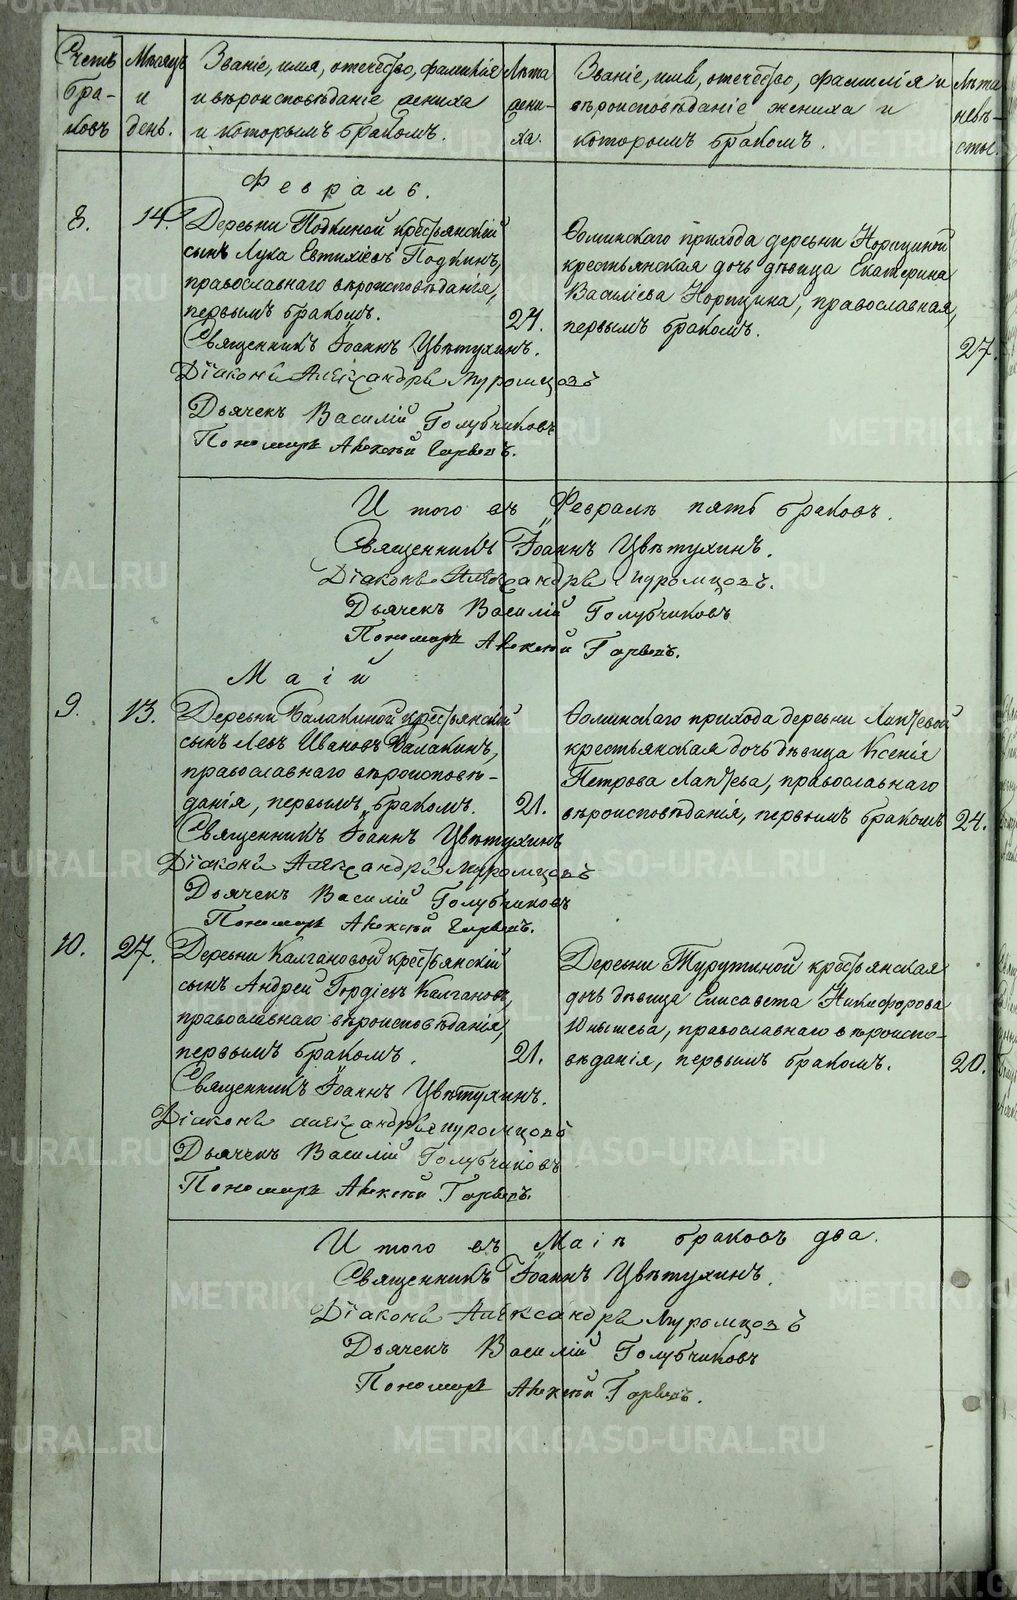 Счетъ браковъ
Мѣсяцъ и день.
Званіе, имя, отечество, фамилія
и вѣроисповѣданіе жениха
и которымъ бракомъ.
Лѣта жениха.
Званіе, имя, отечество, фамилія и
вѣроисповѣданіе жениха и
которымъ бракомъ.
Лѣта невѣсты.
Февраль.
8. 14. Деревни Подкиной крестьянскій
сынъ Лука Евтихіевъ Подкинъ,
православнаго вѣроисповѣданія,
первымъ бракомъ. 24.
Ѳоминскаго прихода деревни Норициной
крестьянская дочь дѣвица Екатерина
Василіева Норицина, православная,
первымъ бракомъ. 27.
Священникъ Іоаннъ Цвѣтухинъ.
Діаконъ Александръ Муромцовъ
Дьячекъ Василій Голубчиковъ
Пономарь Алексѣй
И того въ Февралѣ пять браковъ.
Священникъ Іоаннъ Цвѣтухинъ.
Діаконъ Александръ Муромцовъ.
Дьячекъ Василій Голубчиковъ
Пономарь Алексѣй
Маій
9. 13. Деревни Балакиной крестьянскій
сынъ Левъ Ивановъ Балакинъ,
православнаго вѣроисповѣ-
данія, первымъ бракомъ. 21.
Ѳоминскаго прихода деревни Лаптевой
крестьянская дочь дѣвица Ксенія
Петрова Лаптева, православнаго
вѣроисповѣданія, первымъ бракомъ 24.
Священникъ Іоаннъ Цвѣтухинъ
Діаконъ Александръ Муромцовъ
Дьячекъ Василій Голубчиковъ
Пономарь Алексѣй
10. 27. Деревни Калгановой крестьянскій
сынъ Андрей Гордіевъ Калгановъ,
православнаго вѣроисповѣданія,
первымъ бракомъ. 21.
Деревни Турутиной крестьянская
дочь дѣвица Елисавета Никифорова
Юнышева, православнаго вѣроиспо-
вѣданія, первымъ бракомъ. 20.
Священникъ Іоаннъ Цвѣтухинъ.
Діаконъ Александръ Муромцовъ
Дьячекъ Василій Голубчиковъ
Пономарь Алексѣй
И того въ Маіѣ браковъ два.
Священникъ Іоаннъ Цвѣтухинъ.
Діаконъ Александръ Муромцовъ
Дьячекъ Василій Голубчиковъ
Пономарь Алексѣй
METRIKI.GASO-URAL.RU